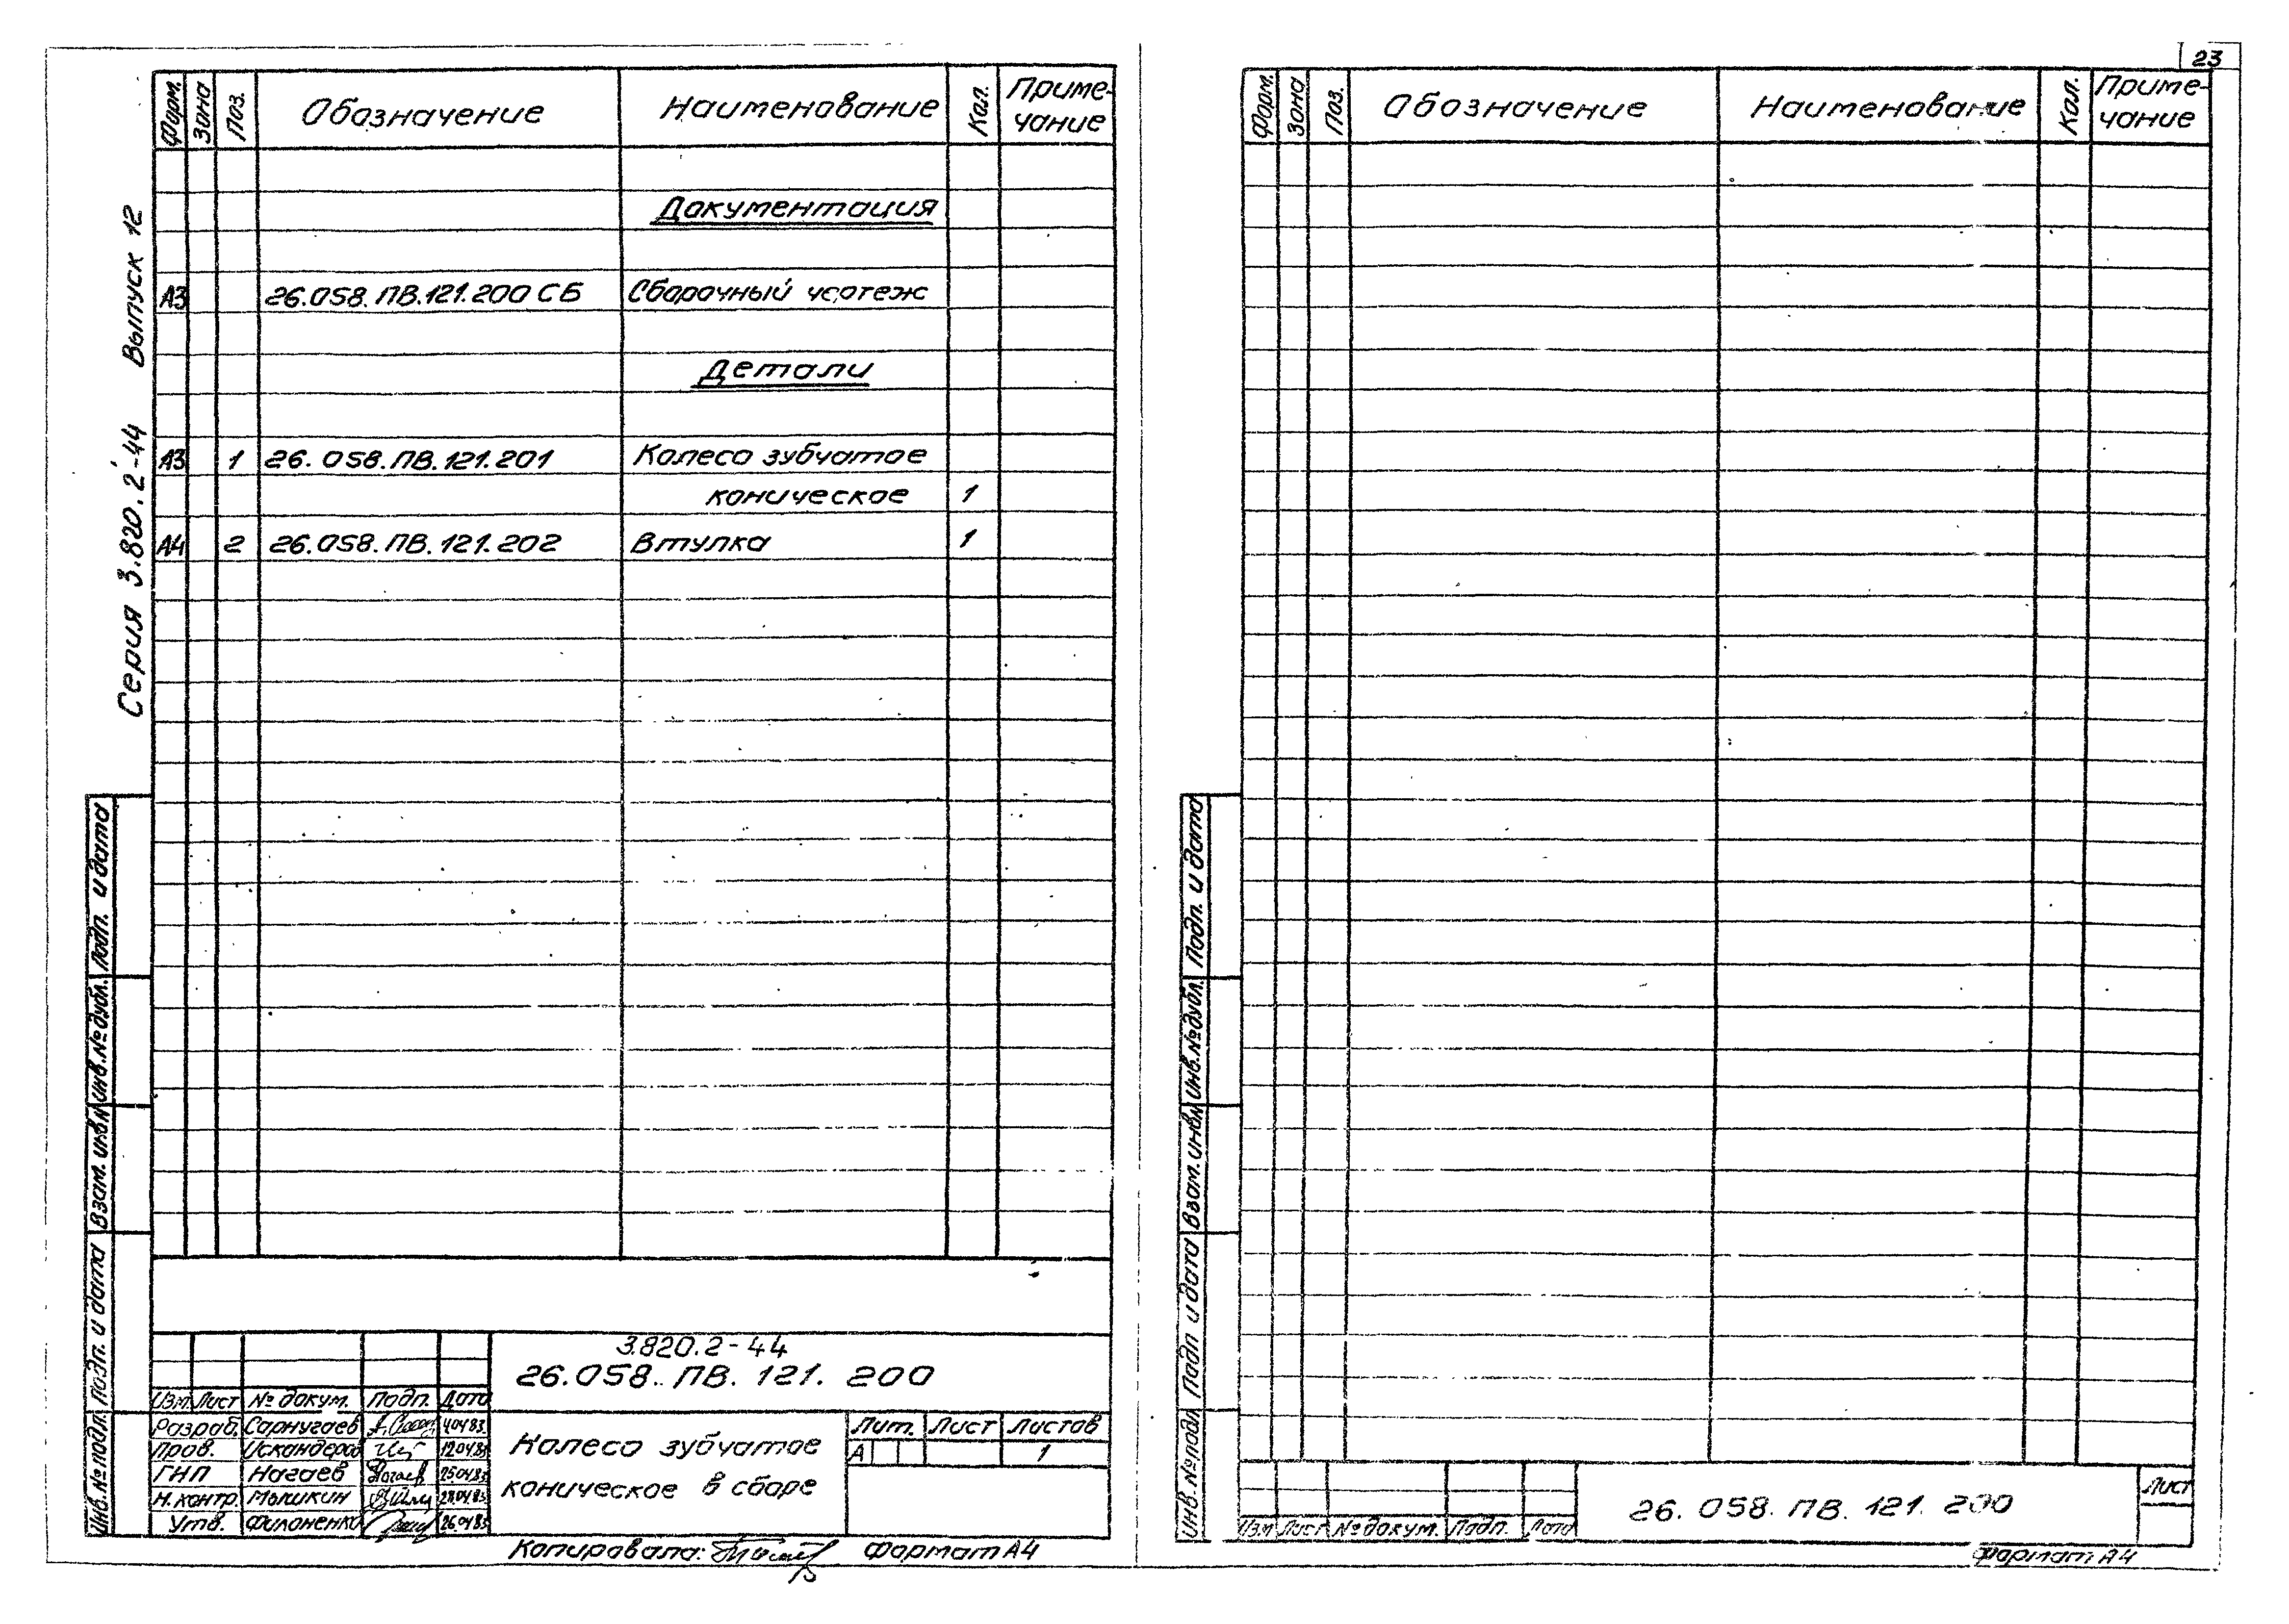 23
Серия 3.820.2-44 Выпуск 12
Форм. Зона Поз. Обозначение Наименование Кол. Приме-
чание
Документация
А3 26.058.ПВ.121.200 СБ Сборочный чертеж
Детали
А3 1 26.058.ПВ.121.201 Колесо зубчатое
коническое 1
А4 2 26.058.ПВ.121.202 Втулка 1
Подп. и дата
Инв.№дубл.
Взам. инв.№
Подп. и дата
Инв.№подл.
3.820.2-44
26.058.ПВ.121.200
Изм Лист № докум. Подп. Дата
Разраб. Сарнугаев 4.04.83
Пров. Искандеров 12.04.83
ГИП Нагаев Нагаев 25.04.83
Н.контр. Мышкин 28.04.83
Утв. Филоненко 26.04.83
Колесо зубчатое
коническое в сборе
Лит. Лист Листов
А 1
Копировала: Формат А4
Форм. Зона Поз. Обозначение Наименование Кол. Приме-
чание
Подп. и дата
Инв.№дубл.
Взам. инв.№
Подп и дата
Инв.№подл
Изм Лист № докум. Подп. Дата
26.058.ПВ.121.200
Лист
Формат А4